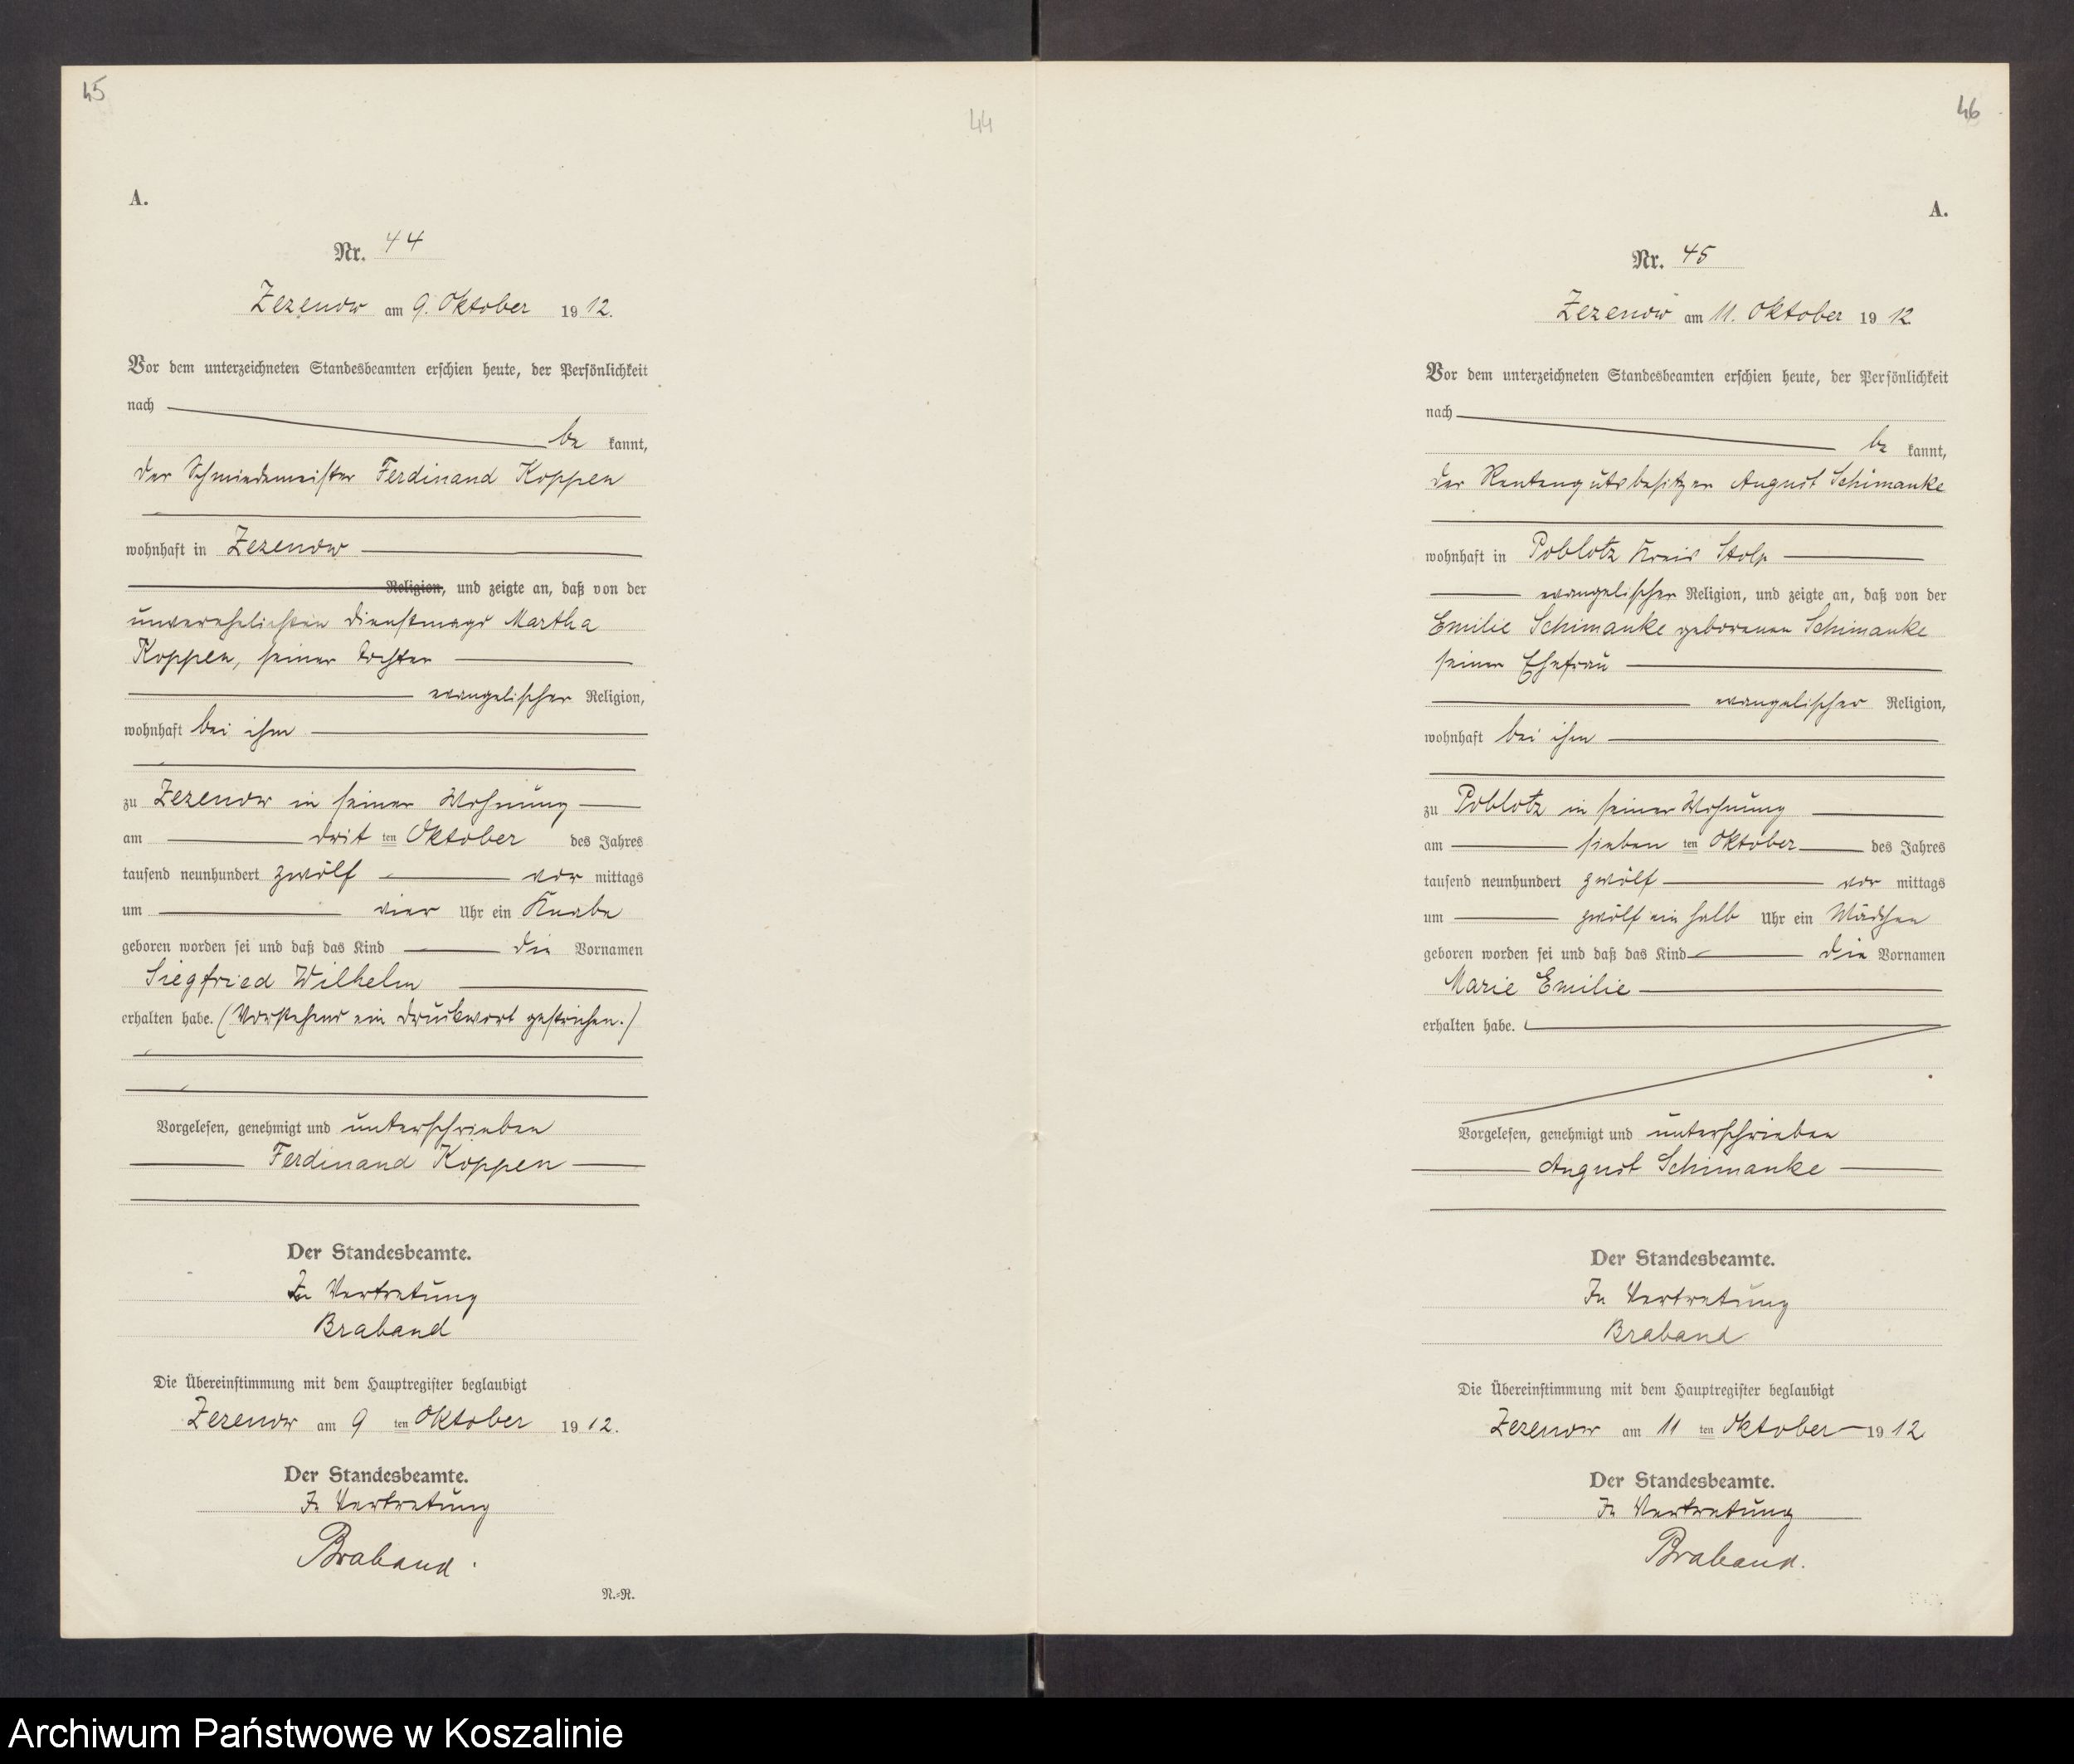 45
44
A.
Nr. 44
Zezenow am 9. Oktober 1912.
Vor dem unterzeichneten Standesbeamten erschien heute, der Persönlichkeit
nach
be kannt,
der Schmiedemeister Ferdinand Koppen
wohnhaft in Zezenow
Religion, und zeigte an, daß von der
unverehelichten Dienstmagd Martha
Koppen, seiner Tochter
evangelischer Religion,
wohnhaft bei ihm
zu Zezenow in seiner Wohnung
am drit ten Oktober des Jahres
tausend neunhundert zwölf vor mittags
um vier Uhr ein Knabe
geboren worden sei und daß das Kind die Vornamen
Siegfried Wilhelm
erhalten habe. (Vorstehend ein Druckwort gestrichen.)
Vorgelesen, genehmigt und unterschrieben
Ferdinand Koppen
Der Standesbeamte.
In Vertretung
Braband
Die Übereinstimmung mit dem Hauptregister beglaubigt
Zezenow am 9 ten Oktober 1912.
Der Standesbeamte.
In Vertretung
Braband.
N.-R.
46
A.
Nr. 45
Zezenow am 11. Oktober 1912
Vor dem unterzeichneten Standesbeamten erschien heute, der Persönlichkeit
nach
be kannt,
der Rentengutsbesitzer August Schimanke
wohnhaft in Poblotz Kreis Stolp
evangelischer Religion, und zeigte an, daß von der
Emilie Schimanke geborenen Schimanke
seiner Ehefrau
evangelischer Religion,
wohnhaft bei ihm
zu Poblotz in seiner Wohnung
am sieben ten Oktober des Jahres
tausend neunhundert zwölf vor mittags
um zwölf ein halb Uhr ein Mädchen
geboren worden sei und daß das Kind die Vornamen
Marie Emilie
erhalten habe.
Vorgelesen, genehmigt und unterschrieben
August Schimanke
Der Standesbeamte.
In Vertretung
Braband
Die Übereinstimmung mit dem Hauptregister beglaubigt
Zezenow am 11 ten Oktober 1912
Der Standesbeamte.
In Vertretung
Braband.
Archiwum Państwowe w Koszalinie